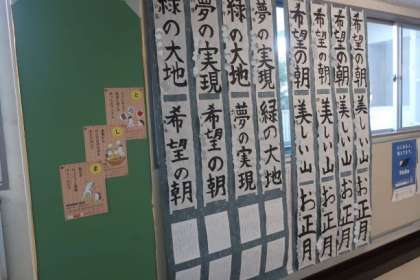 希望の朝
美しい山
お正月
希望の朝
美しい山
お正月
希望の朝
美しい山
お正月
希望の朝
美しい山
お正月
夢の実現
緑の大地
緑の大地
夢の実現
夢の実現
希望の朝
緑の大地
希望の朝